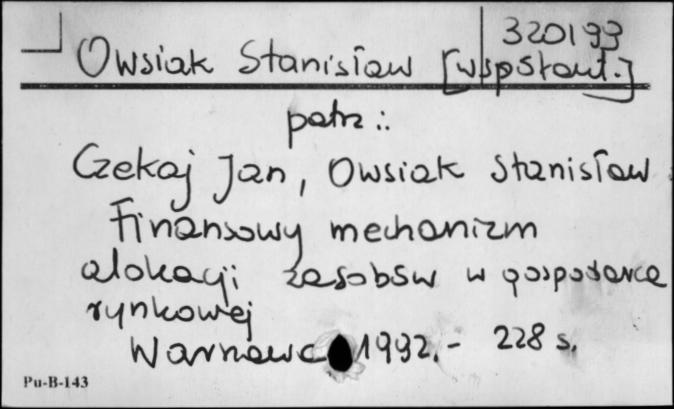 320193
Owsiak Stanisław [współaut.]
patrz:
Czekaj Jan, Owsiak Stanisław:
Finansowy mechanizm
alokacji zasobów w gospodarce
rynkowej
Warszawa 1992.- 228 s.
Pu-B-143